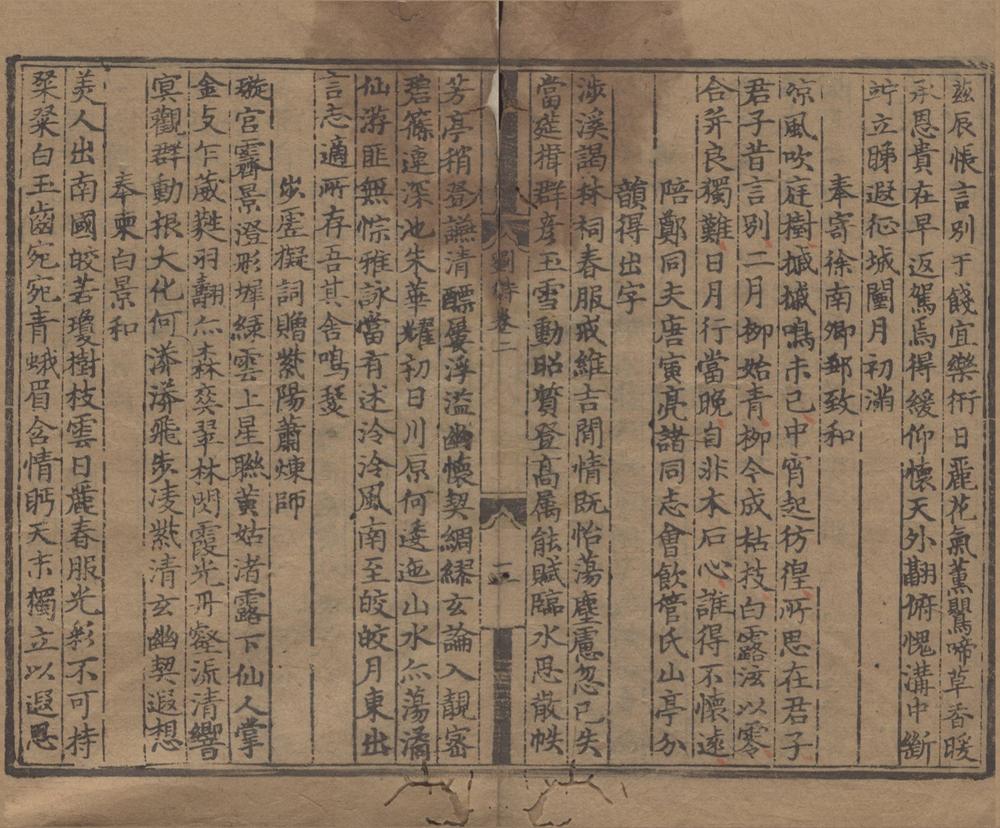 茲辰悵言別于餞宜樂衎日麗花氣薰鸎啼草香暖
承恩貴在早返駕焉得緩仰懷天外翮俯愧溝中斷
竚立睇遐征城闉月初滿
奉寄徐南卿郵致和
凉風吹庭樹摵摵鳴未已中宵起彷徨所思在君子
君子昔言别二月栁始青栁今成枯枝白露泫以零
合并良獨難日月行當晚自非木石心誰得不懷逺
陪鄭同夫唐寅亮諸同志會飲管氏山亭分
韻得出字
涉溪謁林祠春服戒維吉閒情既怡蕩塵慮忽已失
當筵揖群彦玉雪動昭質登高属能賦臨水思散帙
芳亭稍登
清醥
浮溢幽懷契綢繆玄論入靚審
碧篠連深池朱華耀初日川原何逶迤山水亦蕩潏
仙游匪無悰雅詠當有述泠泠風南至皎皎月東出
言志適所存吾其舍鳴瑟
步虗擬詞贈紫陽蕭煉師
璇宮霽景澄形墀緑雲上星聯黄姑渚露下仙人掌
金支乍葳蕤羽翿亦森爽翠林閃霞光丹壑派清響
㝠觀群動根大化何漭漭飛步凌紫清玄幽契遐想
奉柬白景和
美人出南國皎若瓊樹枝雲日麗春服光彩不可持
粲粲白玉齒宛宛青蛾眉含情眄天末獨立以遐思
劉
卷二
二